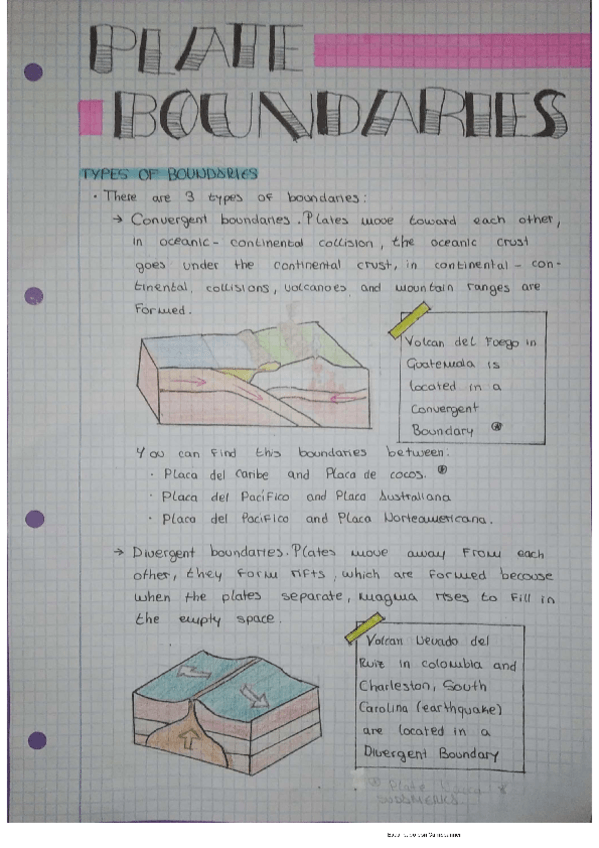 PLATE
BOUNDARIES
TYPES OF BOUNDARIES
• There are 3 types of boundaries:
→ Convergent boundaries. Plates move toward each other,
in oceanic - continental collision, the oceanic crust
goes under the continental crust, in continental - con-
tinental, collisions, volcanoes, and mountain ranges are
formed.
Volcan del Fuego in
Guatemala is
located in a
Convergent
Boundary
You can find this boundaries between:
• Placa del Caribe and Placa de cocos.
• Placa del Pacífico and Placa Australiana
• Placa del Pacifico and Placa Norteamericana.
→ Divergent boundaries. Plates move away from each
other, they form rifts, which are formed because
when the plates separate, magma rises to fill in
the empty space.
Volcan Nevado del
Ruiz in colombia and
Charleston, South
Carolina (earthquake)
are located in a
Divergent Boundary
Plate